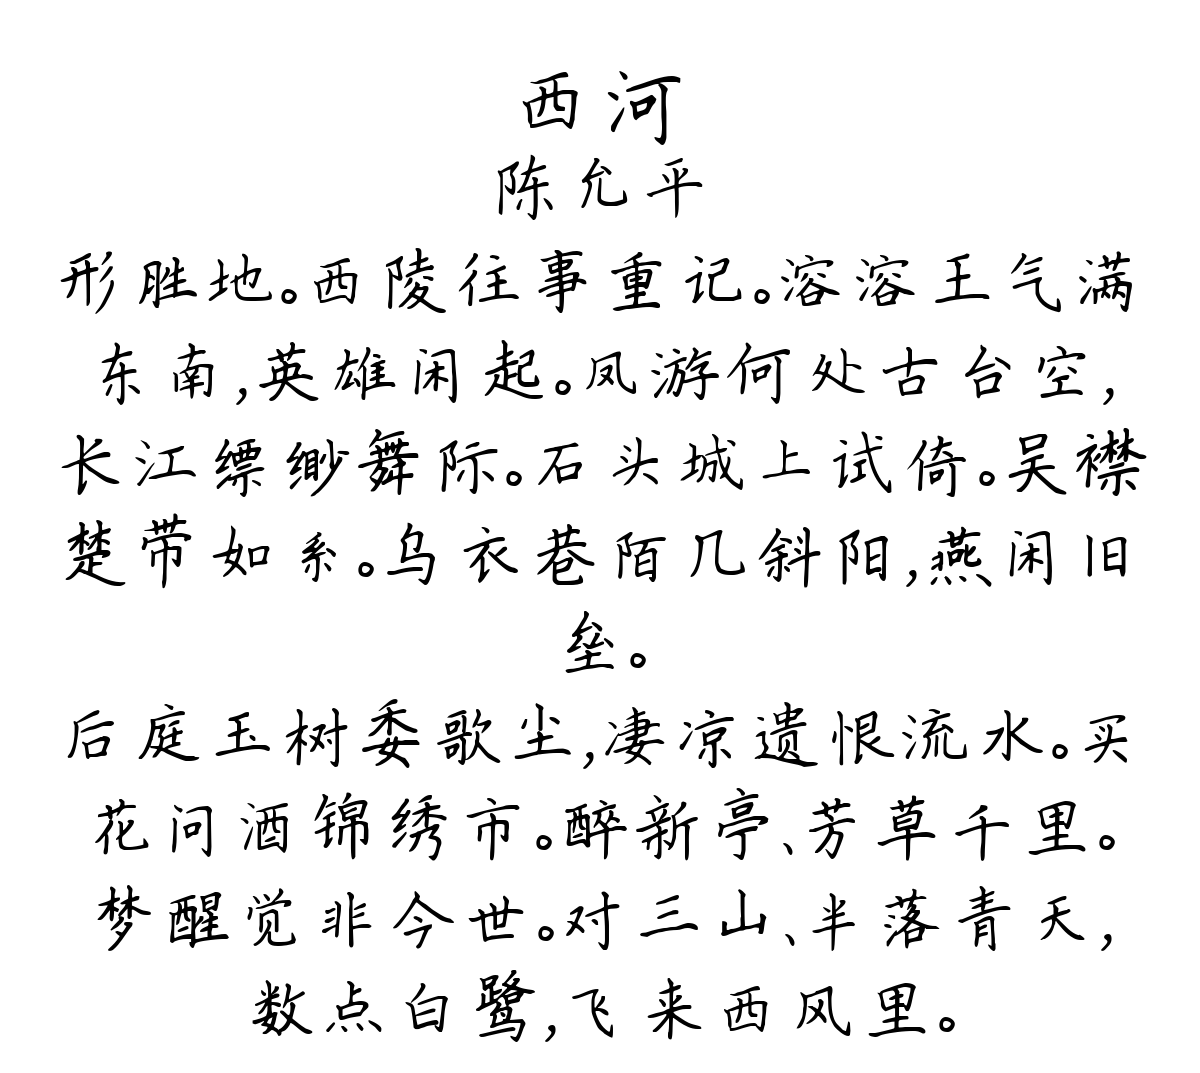 西河
陈允平
形胜地。西陵往事重记。溶溶王气满
东南,英雄闲起。凤游何处古台空,
长江缥缈舞际。石头城上试倚。吴襟
楚带如系。乌衣巷陌几斜阳,燕闲旧
垒。
后庭玉树委歌尘,凄凉遗恨流水。买
花问酒锦绣市。醉新亭、芳草千里。
梦醒觉非今世。对三山、半落青天,
数点白鹭,飞来西风里。